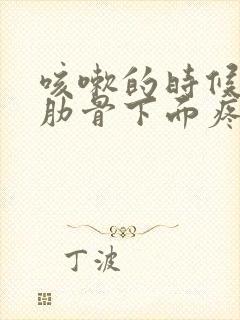 咳嗽的时候
肋骨下面疼
丁波